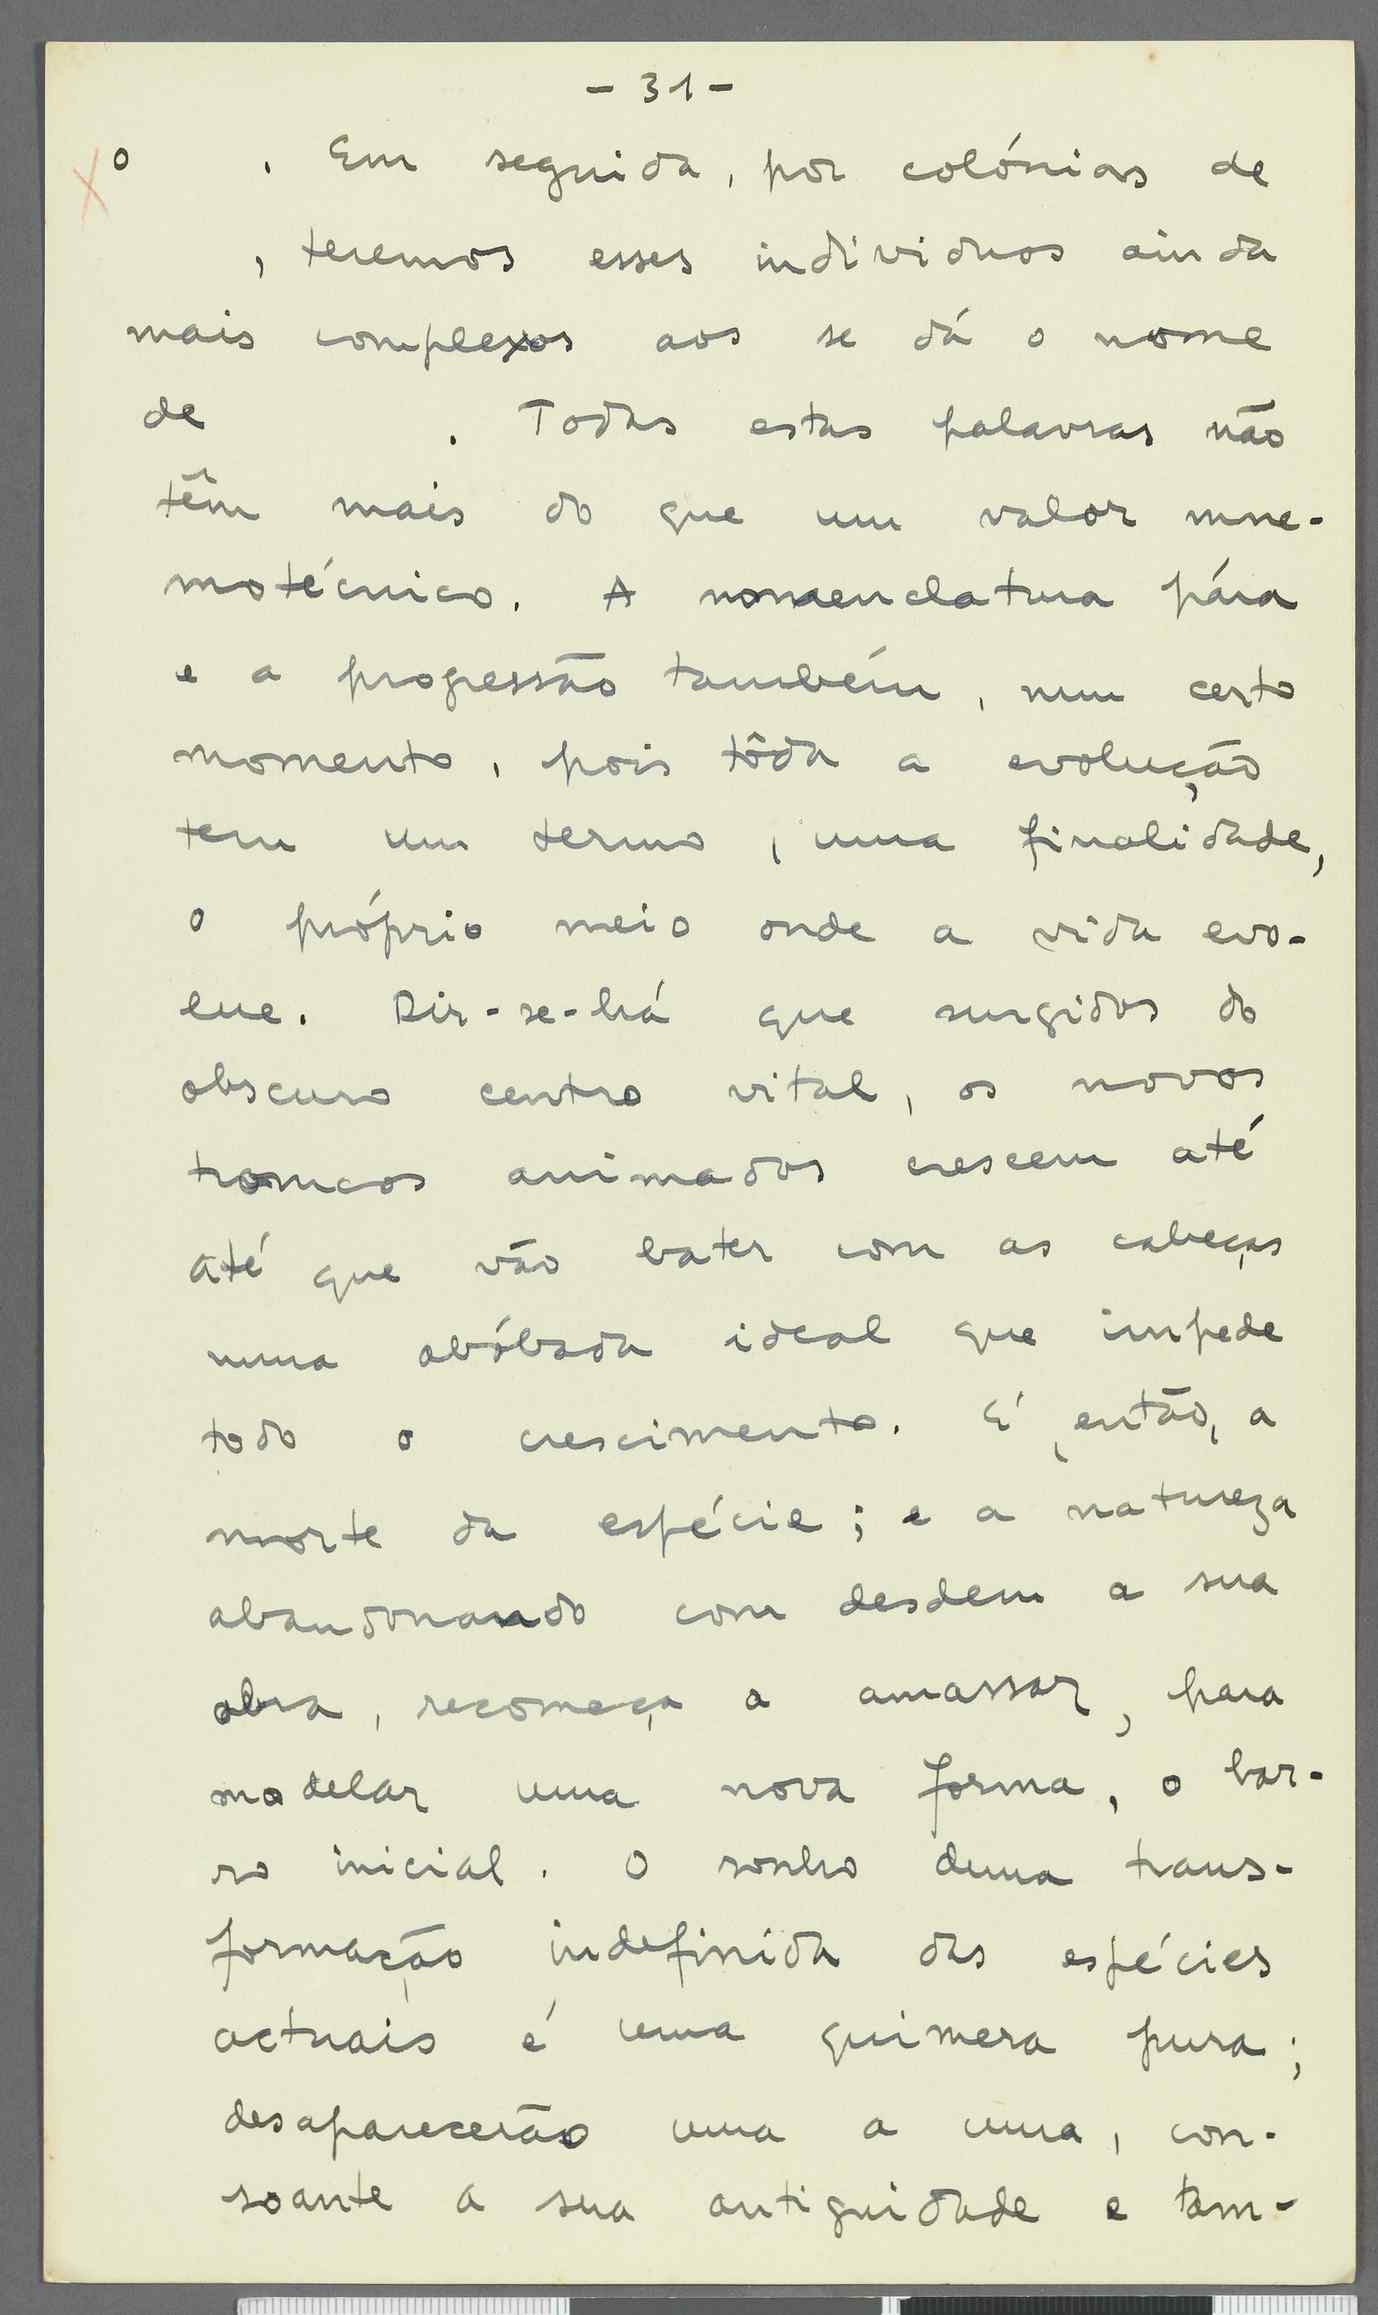 - 31 -
o . Em seguida, por colónias de
, teremos esses indivíduos ainda
mais complexos aos se dá o nome
de . Todas estas palavras não
têm mais do que um valor mne-
motécnico. A nomenclatura pára
e a progressão também, num certo
momento, pois tôda a evolução
tem um termo, uma finalidade,
o próprio meio onde a vida evo-
lue. Dir-se-há que surgidos do
obscuro centro vital, os novos
troncos animados crescem até
até que vão bater com as cabeças
numa abóbada ideal que impede
todo o crescimento. É, então, a
morte da espécie; e a natureza
abandonando com desdem a sua
obra, recomeça a amassar, para
modelar uma nova forma, o bar-
ro inicial. O sonho duma trans-
formação indefinida das espécies
actuais é uma quimera pura;
desaparecerão uma a uma, con-
soante a sua antiguidade e tam-